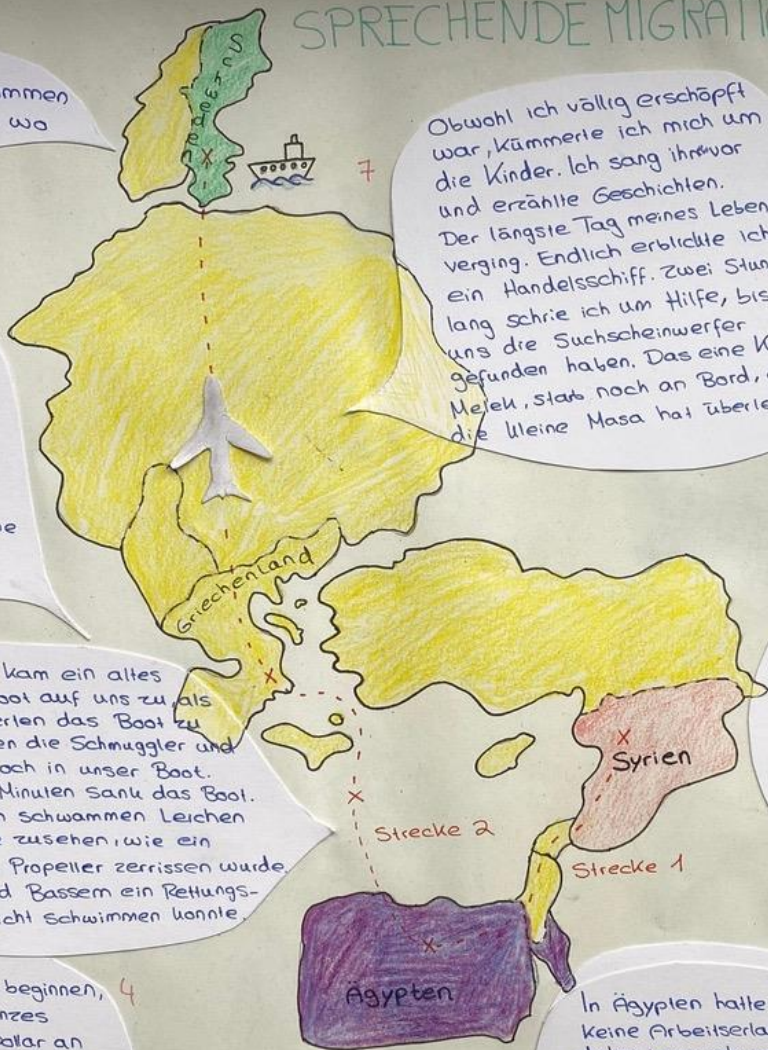 SPRECHENDE MIGRATI
mmen
wo
Schweden
7
Obwohl ich völlig erschöpft
war, kümmerte ich mich um
die Kinder. Ich sang ihnen vor
und erzählte Geschichten.
Der längste Tag meines Leben
verging. Endlich erblickte ich
ein Handelsschiff. Zwei Stun
lang schrie ich um Hilfe, bis
uns die Suchscheinwerfer
gefunden haben. Das eine K
Melek, starb noch an Bord,
die kleine Masa hat überle
e
Griechenland
kam ein altes
oot auf uns zu, als
erten das Boot zu
en die Schmuggler und
och in unser Boot.
Minuten sank das Boot.
n schwammen Leichen
e zusehen, wie ein
Propeller zerrissen wurde.
d Bassem ein Rettungs-
cht schwimmen konnte.
Syrien
Strecke 2
Strecke 1
Ägypten
beginnen,
nzes
ollar an
4
In Ägypten hatte
keine Arbeitserla